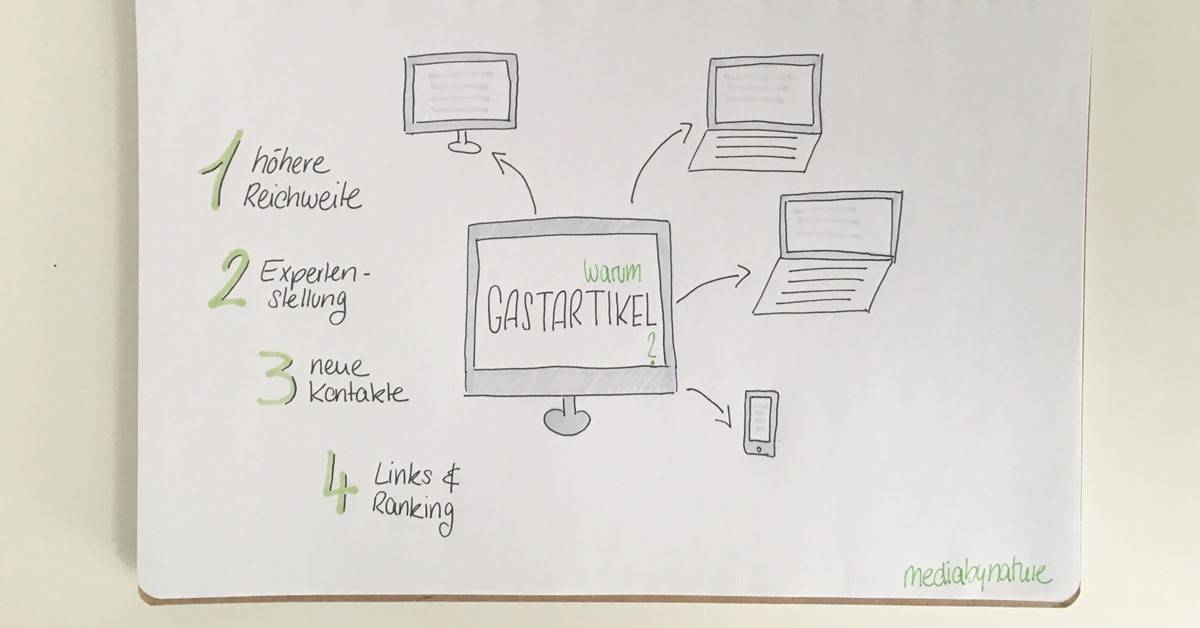 1 höhere
Reichweite
2 Experten-
stellung
3 neue
Kontakte
4 Links &
Ranking
warum
GASTARTIKEL
?
mediabynature